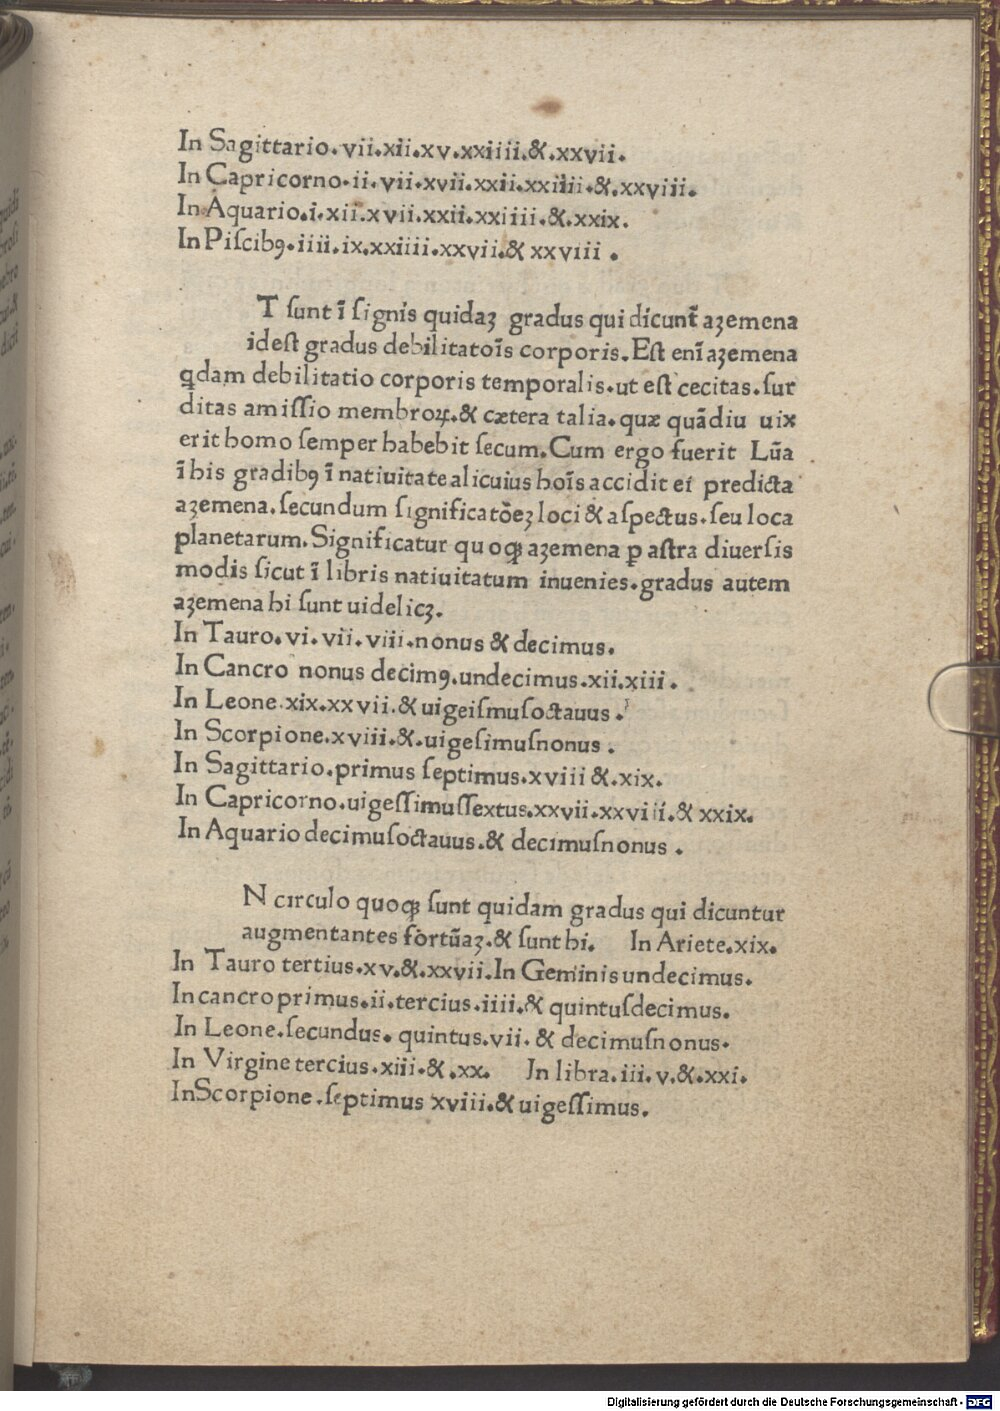 In Sagittario. vii.xii.xv.xxiiii.&.xxvii.
In Capricorno.ii.vii.xvii.xxii.xxiiii.&.xxviii.
In Aquario.i.xii.xvii.xxii.xxiiii.&.xxix.
In Piſcibꝯ.iiii.ix.xxiiii.xxvii.& xxviii .
T ſunt ī ſignis quidaꝫ gradus qui dicunt̄ aꝫemena
id eſt gradus debilitatoīs corporis.Eſt enī aꝫemena
q̄dam debilitatio corporis temporalis.ut eſt cecitas.ſur
ditas amiſſio membroꝝ.& cætera talia.quæ quādiu uix
erit homo ſemper habebit ſecum.Cum ergo fuerit Lūa
ī his gradibꝯ ī natiuitate alicuius hoīs accidit ei predicta
aꝫemena.ſecundum ſignificatōeꝫ loci & aſpectus.ſeu loca
planetarum.Significatur quoqꝫ aꝫemena ꝑ aſtra diuerſis
modis ſicut ī libris natiuitatum inuenies.gradus autem
aꝫemena hi ſunt uidelicꝫ.
In Tauro.vi.vii.viii.nonus & decimus.
In Cancro nonus decimꝯ.undecimus.xii.xiii .
In Leone.xix.xxvii.& uigeiſmuſoctauus .
In Scorpione.xviii.&.uigeſimuſnonus .
In Sagittario.primus ſeptimus.xviii & xix.
In Capricorno.uigeſſimuſſextus.xxvii.xxviii.& xxix.
In Aquario decimuſoctauus.& decimuſnonus .
N circulo quoqꝫ ſunt quidam gradus qui dicuntur
augmentantes fortūaꝫ.& ſunt hi. In Ariete.xix.
In Tauro tertius.xv.&.xxvii.In Geminis undecimus.
In cancro primus.ii.tercius.iiii.& quintuſdecimus.
In Leone.ſecundus. quintus.vii. & decimuſnonus.
In Virgine tercius.xiii.&.xx. In libra.iii.v.&.xxi.
InScorpione.ſeptimus xviii.& uigeſſimus.
Digitalisierung gefördert durch die Deutsche Forschungsgemeinschaft - DFG